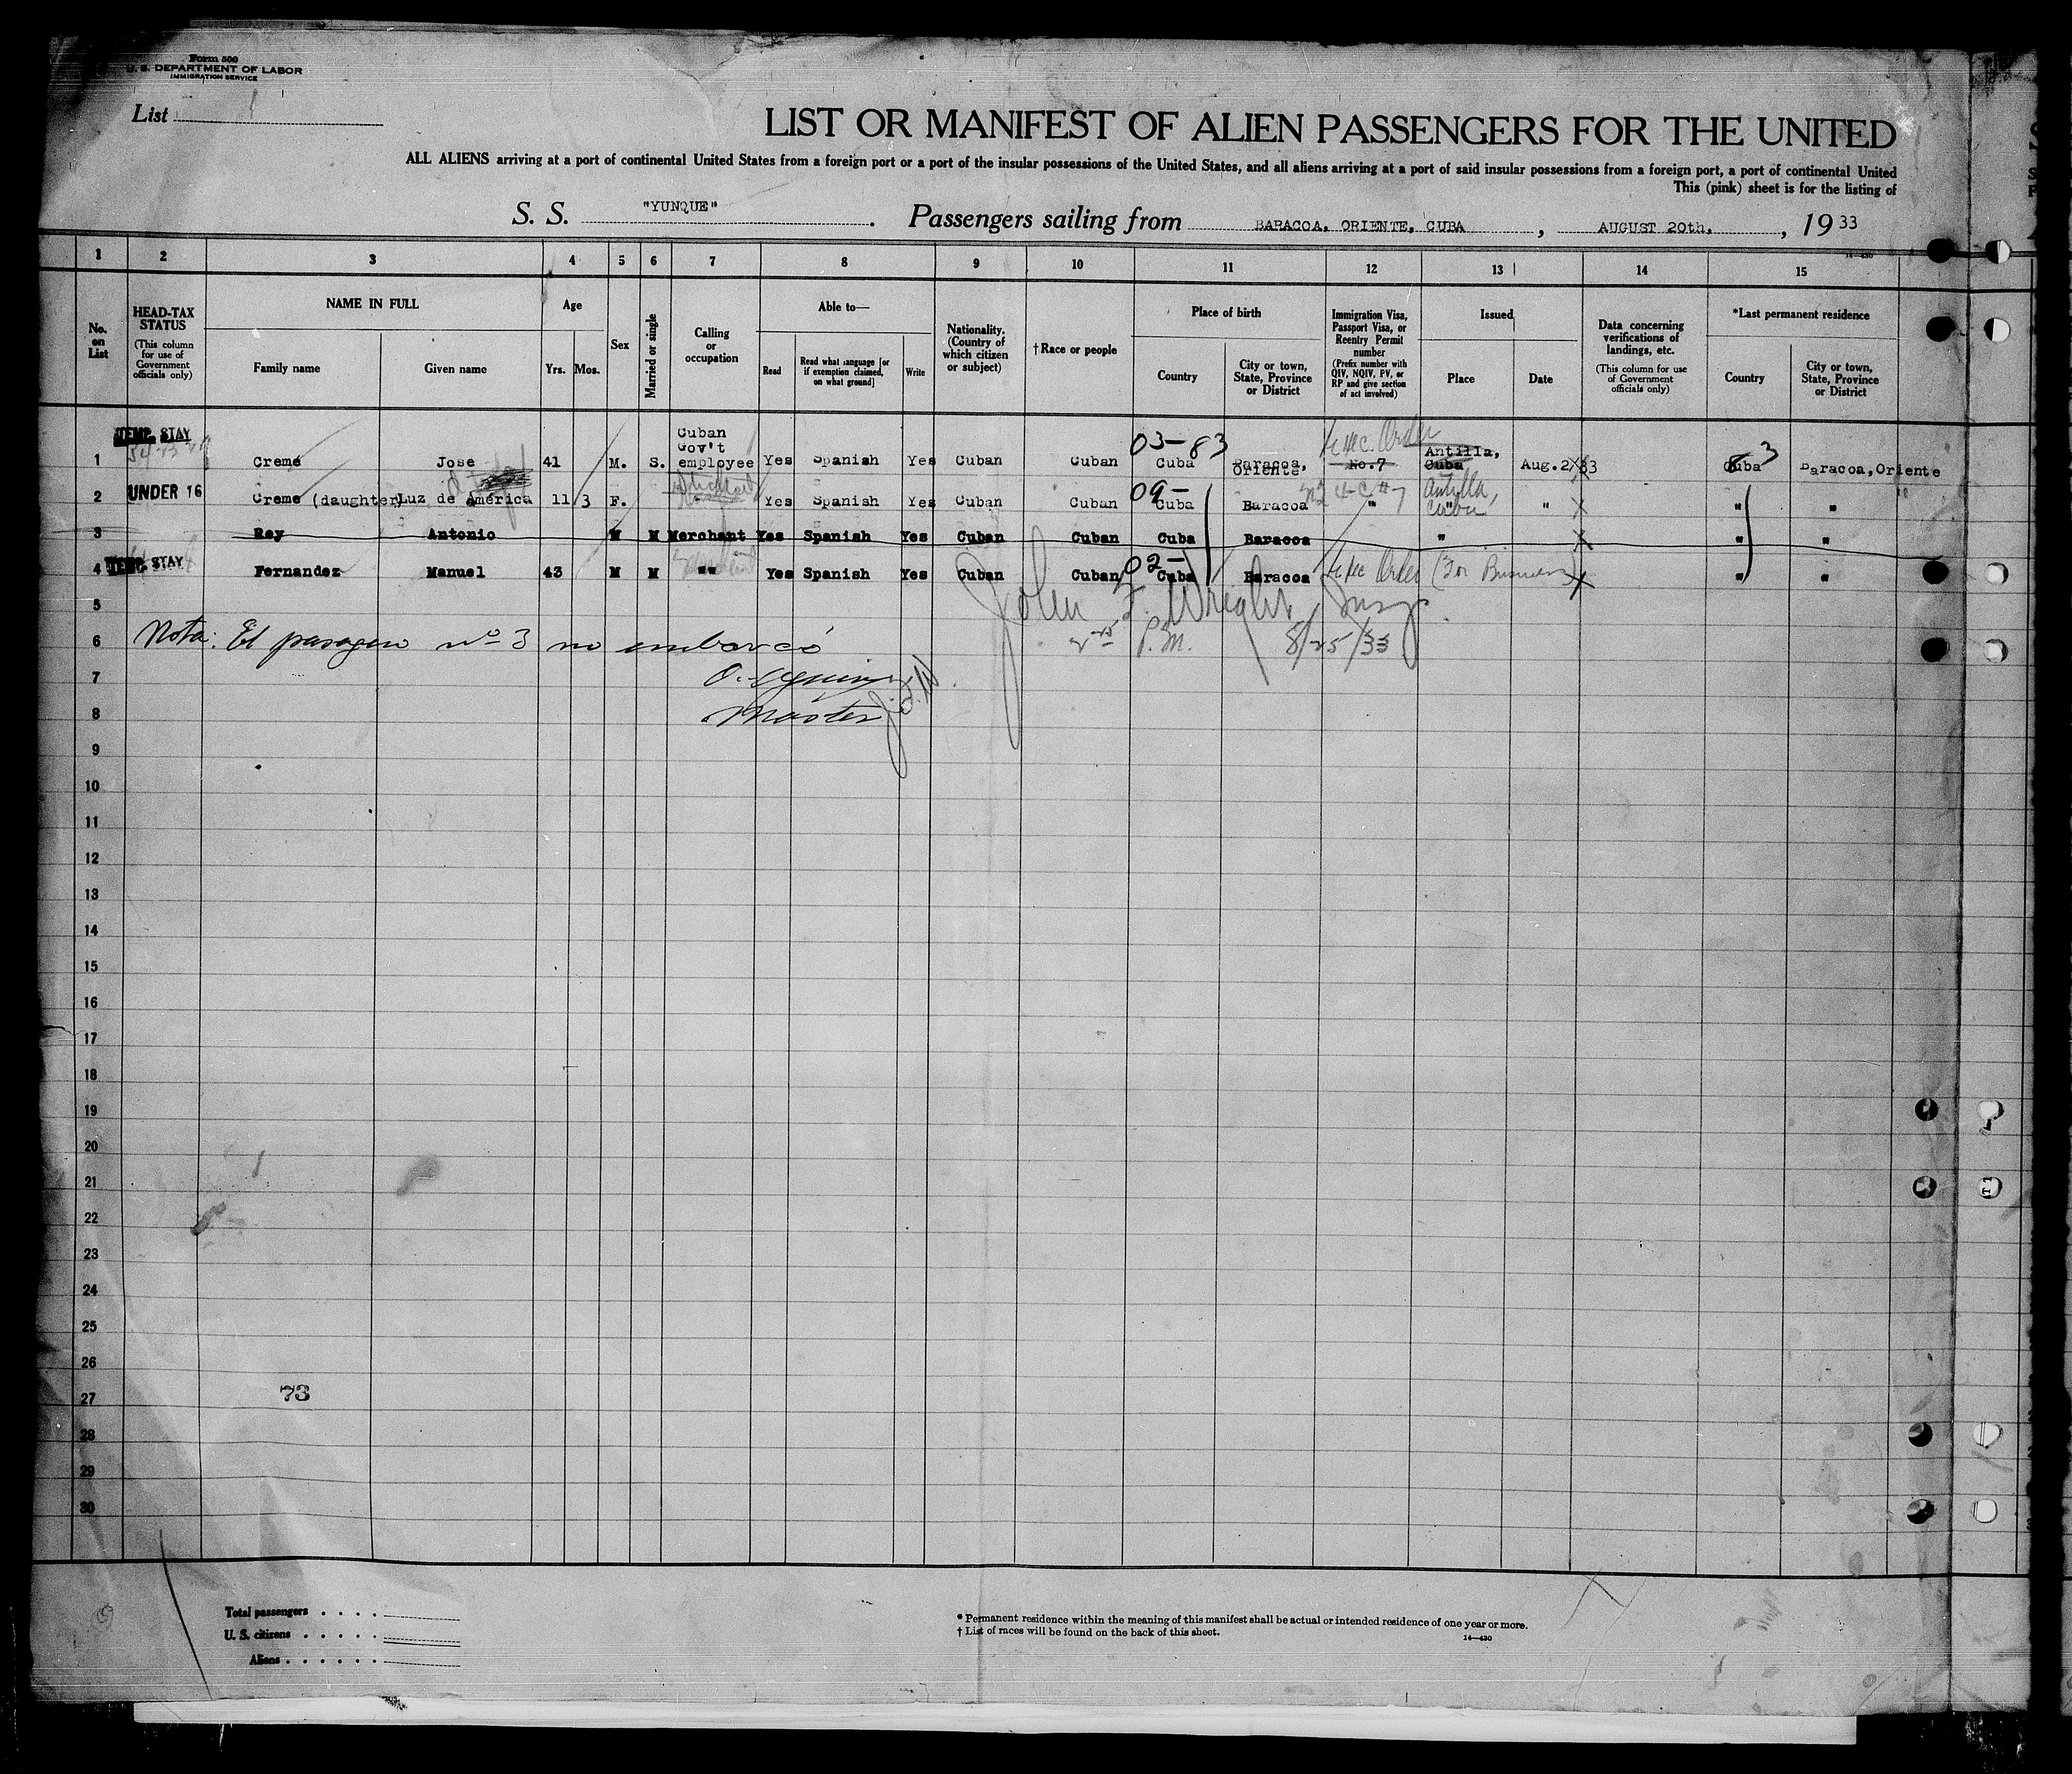 Form 500
U. S. DEPARTMENT OF LABOR
IMMIGRATION SERVICE
List 1
LIST OR MANIFEST OF ALIEN PASSENGERS FOR THE UNITED
ALL ALIENS arriving at a port of continental United States from a foreign port or a port of the insular possessions of the United States, and all aliens arriving at a port of said insular possessions from a foreign port, a port of continental United
This (pink) sheet is for the listing of
S. S. "YUNQUE". Passengers sailing from BARACOA, ORIENTE, CUBA, AUGUST 20th, , 1933
1 2 3 4 5 6 7 8 9 10 11 12 13 14 15
14—430
No. on List
HEAD-TAX STATUS (This column for use of Government officials only)
NAME IN FULL
Family name
Given name
Age
Yrs.
Mos.
Sex
Married or single
Calling or occupation
Able to—
Read
Read what language [or if exemption claimed, on what ground]
Write
Nationality. (Country of which citizen or subject)
†Race or people
Place of birth
Country
City or town, State, Province or District
Immigration Visa, Passport Visa, or Reentry Permit number (Prefix number with QIV, NQIV, PV, or RP and give section of act involved)
Issued
Place
Date
Data concerning verifications of landings, etc. (This column for use of Government officials only)
*Last permanent residence
Country
City or town, State, Province or District
TEMP. STAY
1 Creme Jose 41 M. S. Cuban Gov't employee Yes Spanish Yes Cuban Cuban 03-83 Cuba Baracoa, Oriente Exec. Order No.7 Antilla, Cuba Aug.2/33 Cuba 3 Baracoa, Oriente
UNDER 16
2 Creme (daughter) Luz de America 11 3 F. Yes Spanish Yes Cuban Cuban 09- Cuba Baracoa " Antilla, Cuba " " "
3 Rey Antonio M M Merchant Yes Spanish Yes Cuban Cuban Cuba Baracoa " " "
TEMP. STAY
4 Fernandez Manuel 43 M M "" Yes Spanish Yes Cuban Cuban 02- Cuba Baracoa Exec Order (For Business) " "
John F. Wright Insp
5
6 Nota: El pasagero nº 3 no embarcó
P.M. 8/25/33
7
8 Master
J.F.W
9
10
11
12
13
14
15
16
17
18
19
20
21
22
23
24
25
26
27 73
28
29
30
Total passengers . . . .
U. S. citizens . . . . .
Aliens . . . . . .
* Permanent residence within the meaning of this manifest shall be actual or intended residence of one year or more.
† List of races will be found on the back of this sheet.
14—430